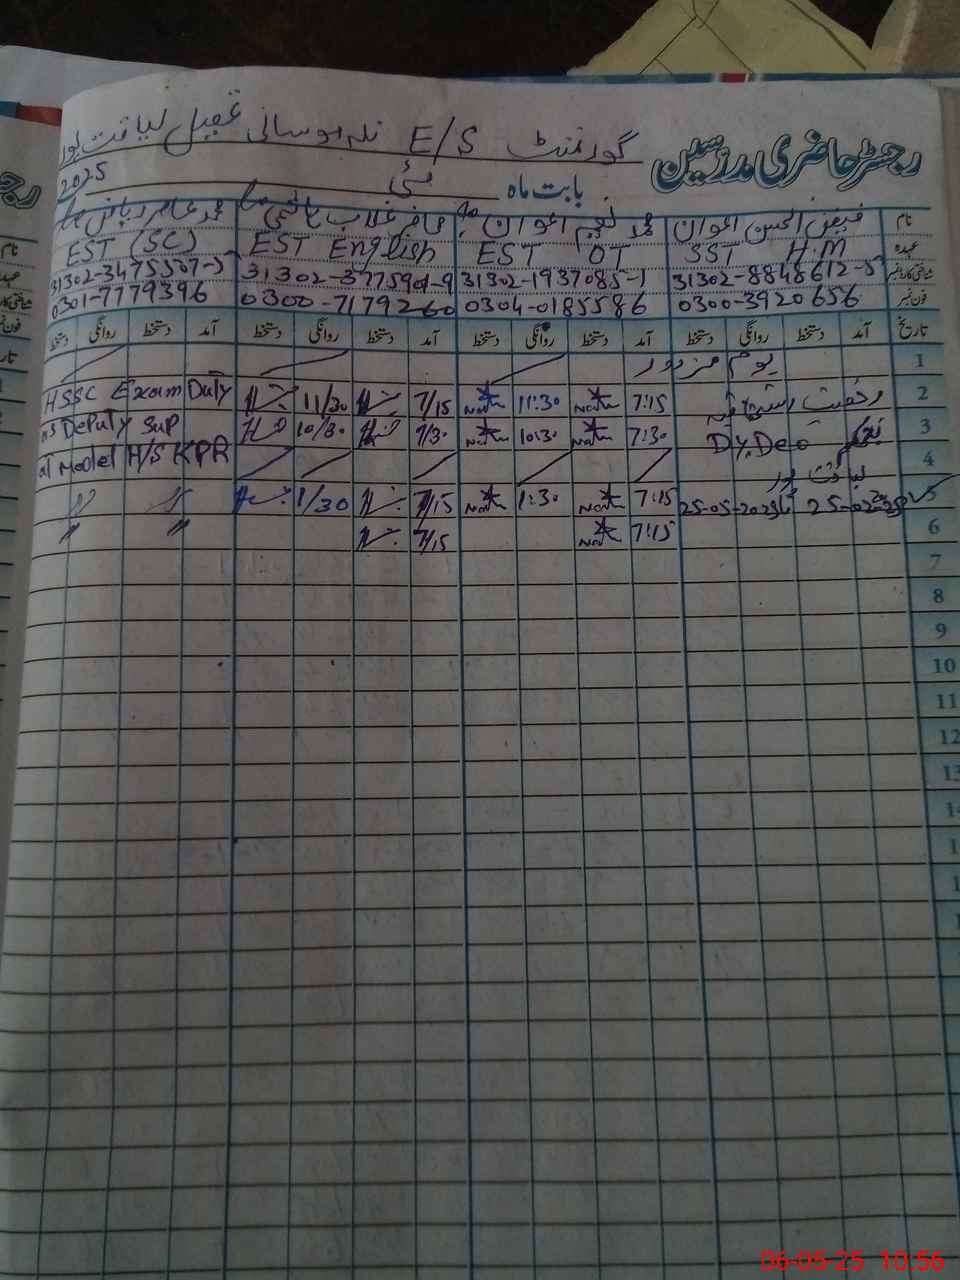 رجسٹر حاضری مدرسین
گورنمنٹ E/S ٹلہ موسانی تحصیل لیاقت پور
بابت ماہ مئی 2025
نام فیض الحسن اعوان محمد نعیم اعوان حافظ غلاب ہاشمی محمد عامر ریاض
عہدہ SST H.M EST OT EST English EST (SC)
شناختی کارڈ نمبر 31302-8848612-5 31302-1937085-1 31302-3775901-9 31302-3475507-5
فون نمبر 0300-3920656 0304-0185586 0300-7179260 0301-7779396
تاریخ آمد دستخط روانگی دستخط آمد دستخط روانگی دستخط آمد دستخط روانگی دستخط آمد دستخط روانگی دستخط
1 یوم مزدور
2 رخصت 7:15 11:30 7/15 11/30 HSSC Exam Duty
3 Dy.Deo 7:30 10:30 7/30 10/30 as Deputy Sup
4 لیاقت پور at Model H/S KPR
5 7:15 1:30 7/15 1/30 〃 〃
6 7:15 7/15 〃 〃
7
8
9
10
11
12
13
14
رجس
نام
06-05-25 10:56